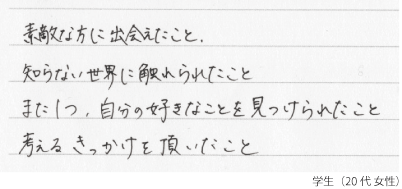 素敵な方に出会えたこと.
知らない世界に触れられたこと
また1つ, 自分の好きなことを見つけられたこと
考えるきっかけを頂いたこと
学生（20代 女性）